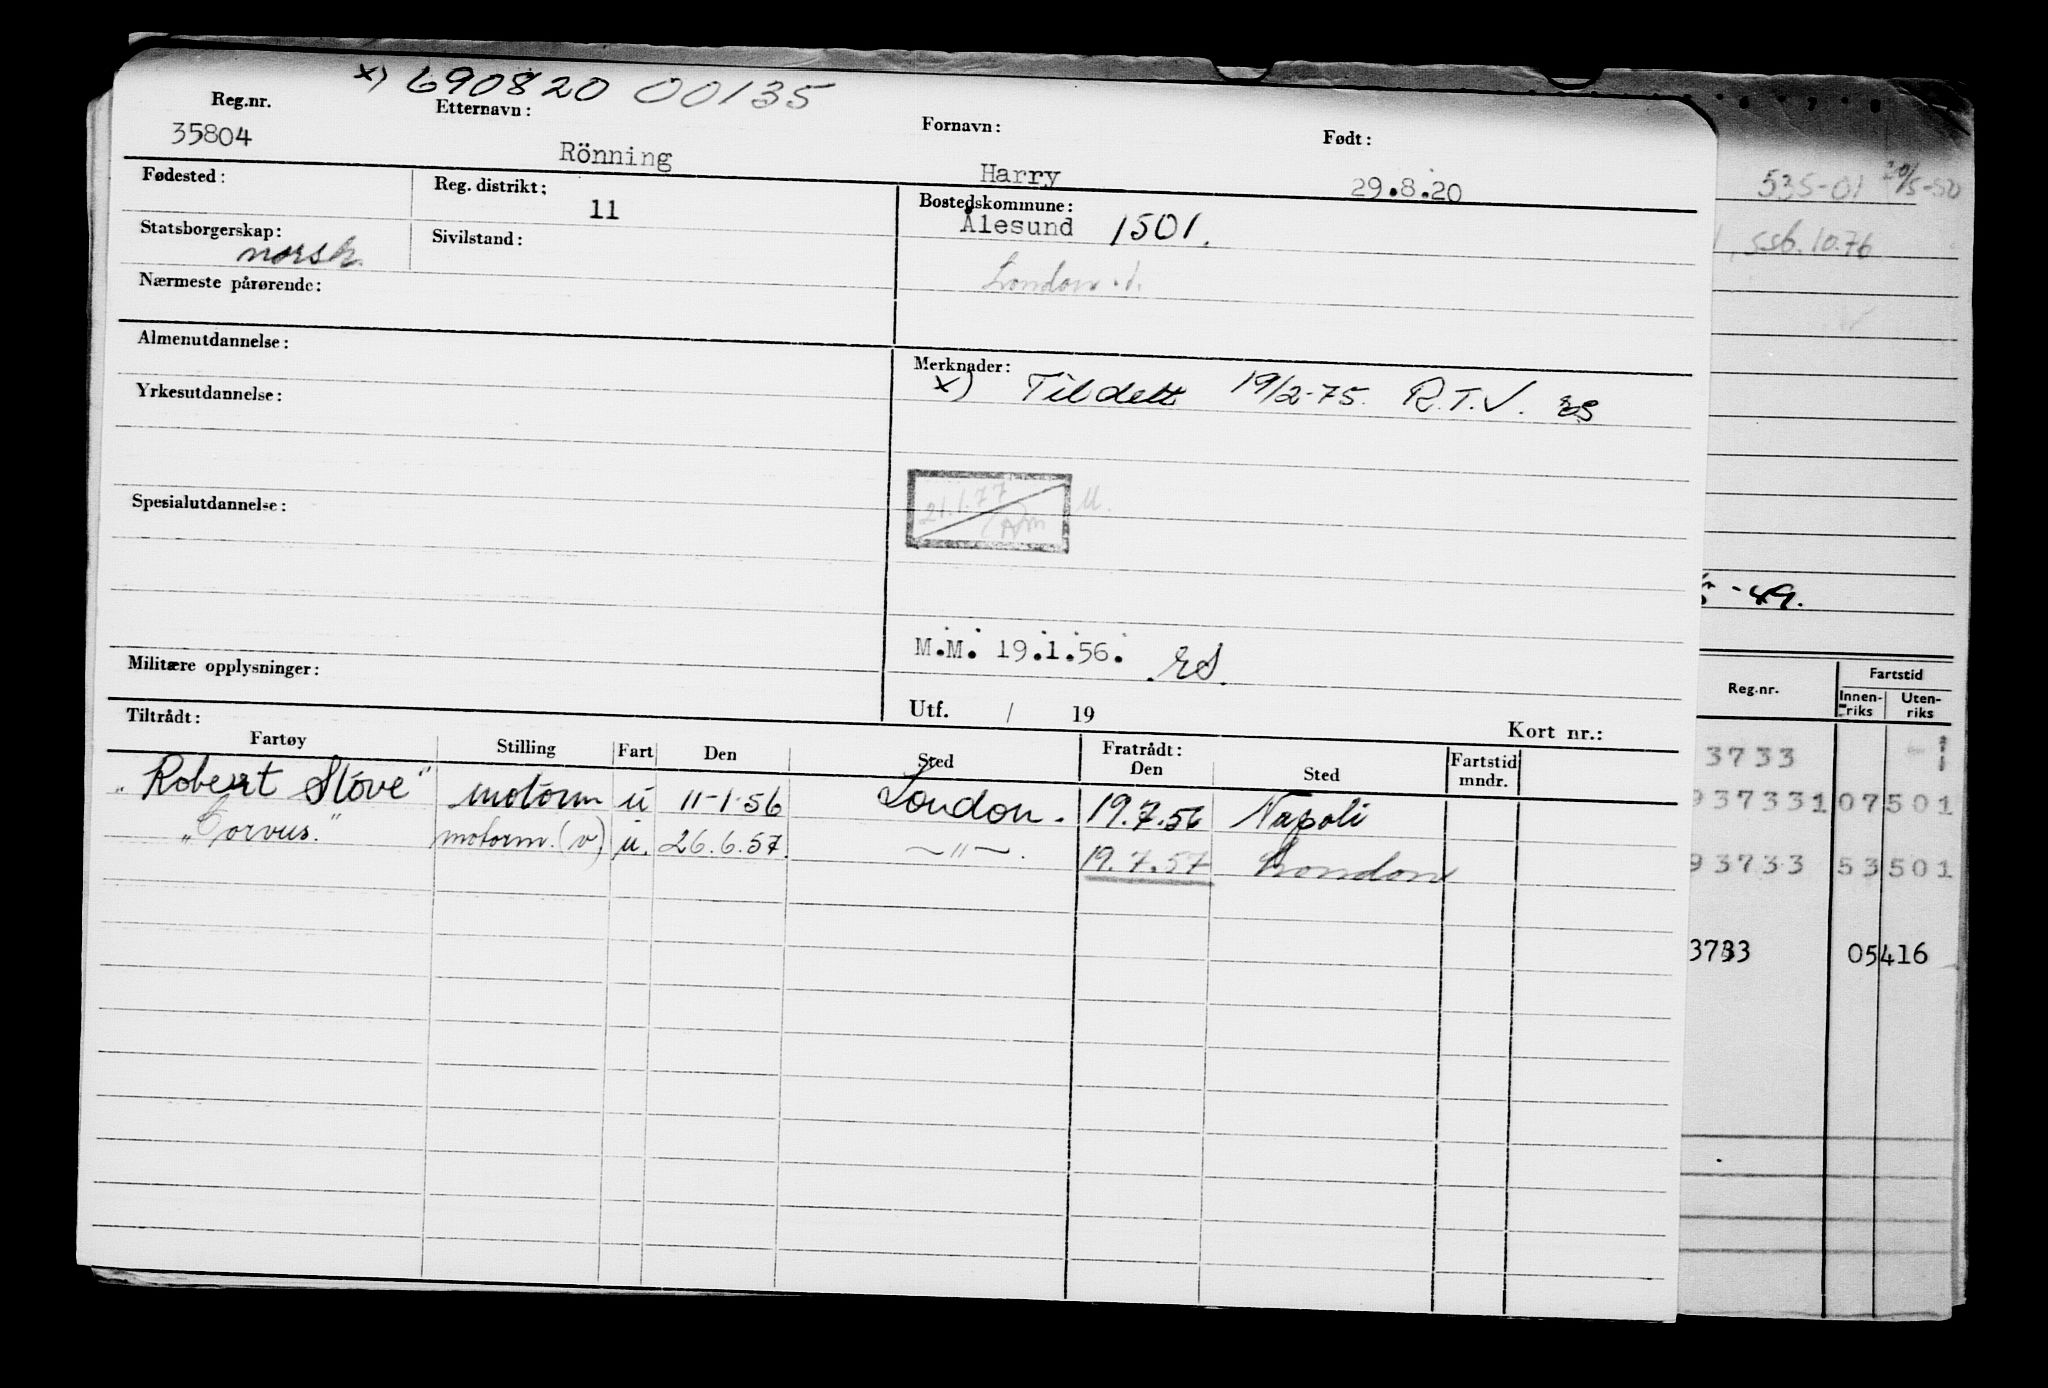 x) 690820 00135
Reg.nr. Etternavn: Fornavn: Født:
35804 Rönning Harry 29.8.20
Fødested: Reg. distrikt: 11 Bostedskommune:
Ålesund 1501.
Statsborgerskap: norsk. Sivilstand:
London.
Nærmeste pårørende:
Almenutdannelse: Merknader:
x) Tildelt 19/2-75. R.T.V. ES
Yrkesutdannelse:
21.1.77
Spesialutdannelse:
M.M. 19.1.56. ES.
Militære opplysninger:
Utf. / 19 Kort nr.:
Tiltrådt: Fratrådt:
Fartøy Stilling Fart Den Sted Den Sted Fartstid mndr.
"Robert Stöve" motorm u 11-1-56 London. 19.7.56 Napoli
"Corvus." motorm. (v) u. 26.6.57. —"—. 19.7.57 London
535-01 20/5-50
ssb. 10.76
-49.
Reg.nr. Fartstid
Innen-riks Uten-riks
3733
937331 07501
93733 53501
3733 05416